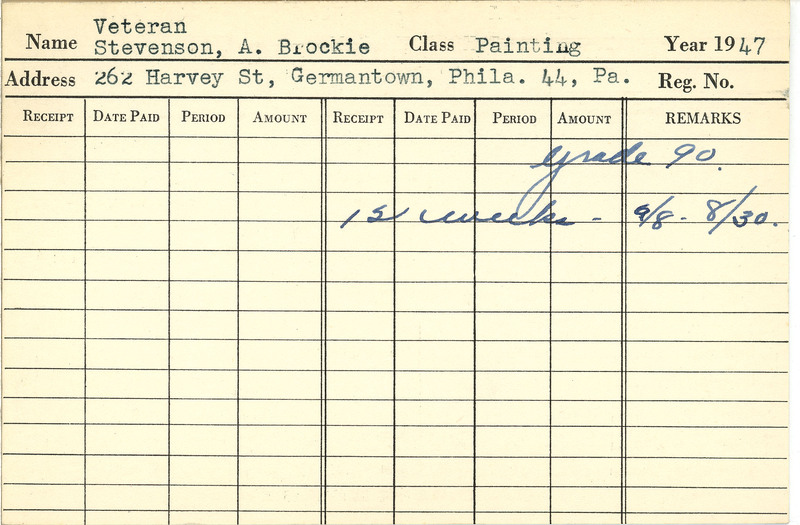 Veteran
Name Stevenson, A. Brockie Class Painting Year 1947
Address 262 Harvey St, Germantown, Phila. 44, Pa. Reg. No.
RECEIPT DATE PAID PERIOD AMOUNT RECEIPT DATE PAID PERIOD AMOUNT REMARKS
Grade 90.
weeks - 8/30.